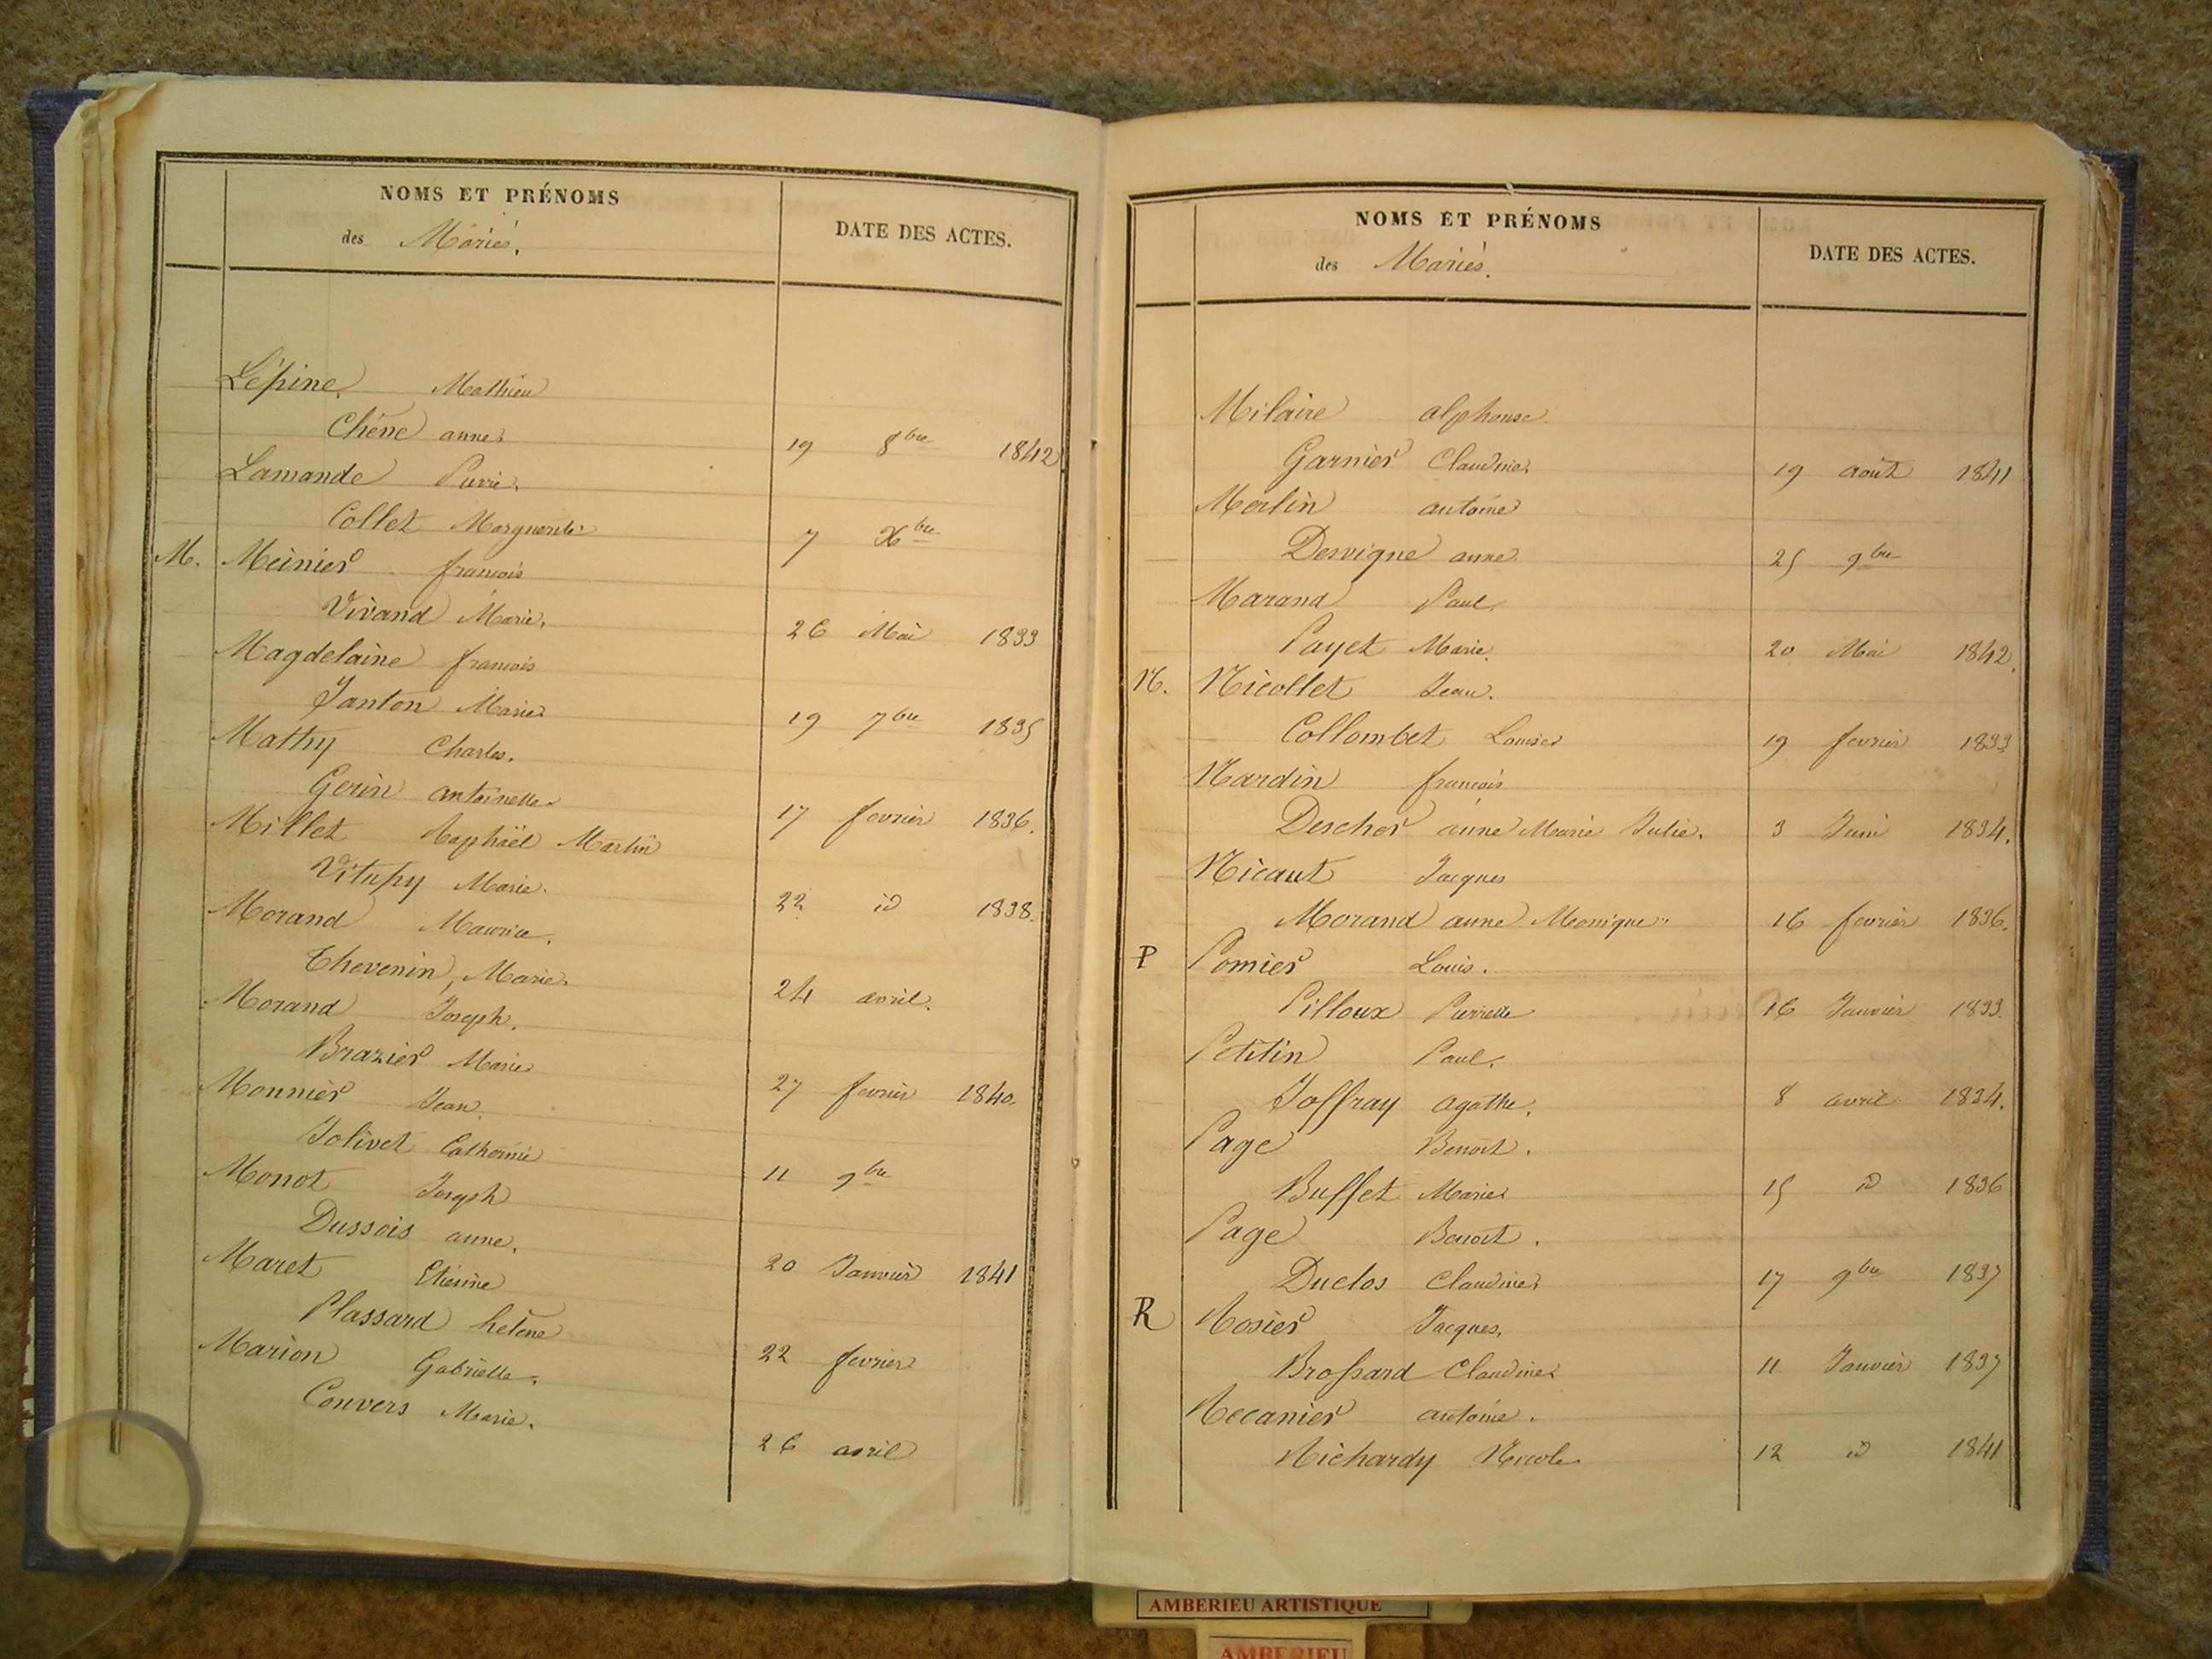 NOMS ET PRÉNOMS
des Mariés.
DATE DES ACTES.
Lépine Mathieu
Chêne anne 19 8bre 1842
Lamande Pierre.
Collet Marguerite 7 Xbre
M. Meinier francois
Vivand Marie. 26 Mai 1833
Magdelaine francois
Janton Marie 19 7bre 1835
Mathy Charles.
Gerin antoinette 17 fevrier 1836.
Millet Raphaël Martin
Vitupy Marie. 22 id 1838.
Morand Maurice.
Thevenin, Marie 24 avril.
Morand Joseph.
Brazier Marie 27 fevrier 1840.
Monnier Jean.
Jolivet Catherine 11 9bre
Monot Joseph
Dussois anne. 20 Janvier 1841
Maret Etienne
Plassard helène 22 fevrier
Marion Gabrielle.
Convers Marie. 26 avril
NOMS ET PRÉNOMS
des Mariés.
DATE DES ACTES.
Milaire alphonse
Garnier Claudine 19 août 1841
Merlin antoine
Dervigne anne 25 9bre
Marand Paul.
Payet Marie. 20 Mai 1842.
N. Nicollet Jean.
Collombet Louise 19 fevrier 1833
Nardin francois
Descher anne Marie Julie. 3 Juin 1834.
Nicaut Jacques
Morand anne Monique 16 fevrier 1836.
P Pomier Louis.
Pilloux Pierrette 16 Janvier 1833.
Petitin Paul.
Joffray agathe. 8 avril 1834.
Page Benoit.
Buffet Marie 15 id 1836
Page Benoit.
Duclos Claudine 17 9bre 1837
R Rosier Jacques.
Brossard Claudine 11 Janvier 1837
Recanier antoine.
Richardy Nicole 12 id 1841
AMBERIEU ARTISTIQUE
AMBERIEU